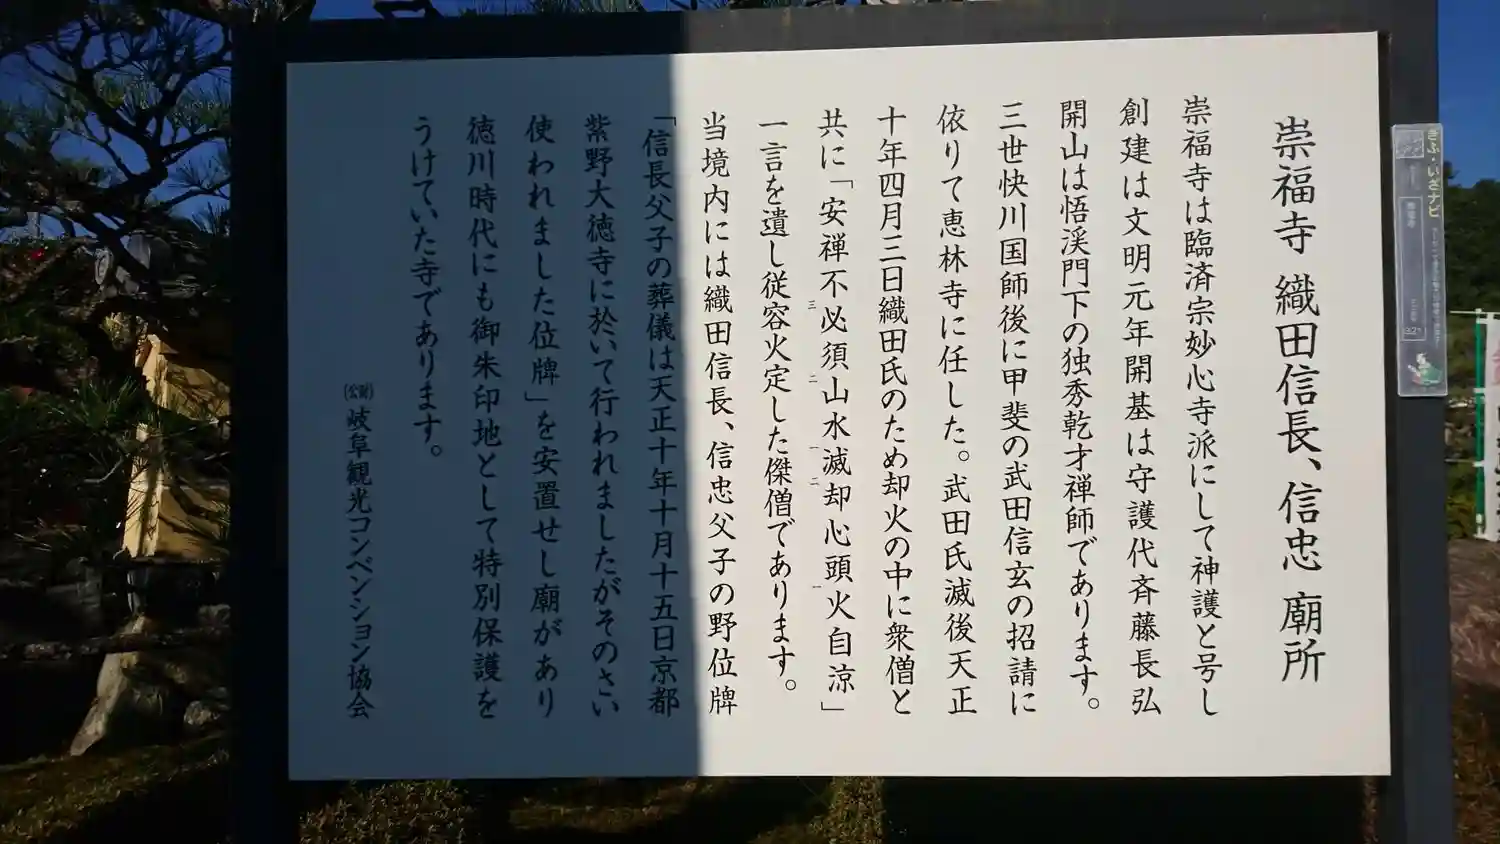 崇福寺 織田信長、信忠 廟所
崇福寺は臨済宗妙心寺派にして神護と号し
創建は文明元年開基は守護代斉藤長弘
開山は悟渓門下の独秀乾才禅師であります。
三世快川国師後に甲斐の武田信玄の招請に
依りて恵林寺に任した。武田氏滅後天正
十年四月三日織田氏のため却火の中に衆僧と
共に「安禅不三必須二山水一滅二却心頭一火自涼」
一言を遺し従容火定した傑僧であります。
当境内には織田信長、信忠父子の野位牌
「信長父子の葬儀は天正十年十月十五日京都
紫野大徳寺に於いて行われましたがそのさい
使われました位牌」を安置せし廟があり
徳川時代にも御朱印地として特別保護を
うけていた寺であります。
(公財)岐阜観光コンベンション協会
ぎふ・いざナビ